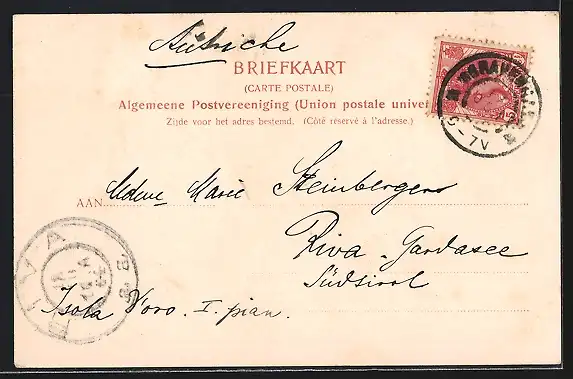 Autriche
BRIEFKAART
(CARTE POSTALE)
Algemeene Postvereeniging (Union postale univer
Zijde voor het adres bestemd. (Côté réservé à l'adresse.)
'SGRAVENHAGE
5-7V
AAN Mdme Marie Steinbergens
Riva - Gardasee
Südtirol
Isola Voro. I. pian.
RIVA